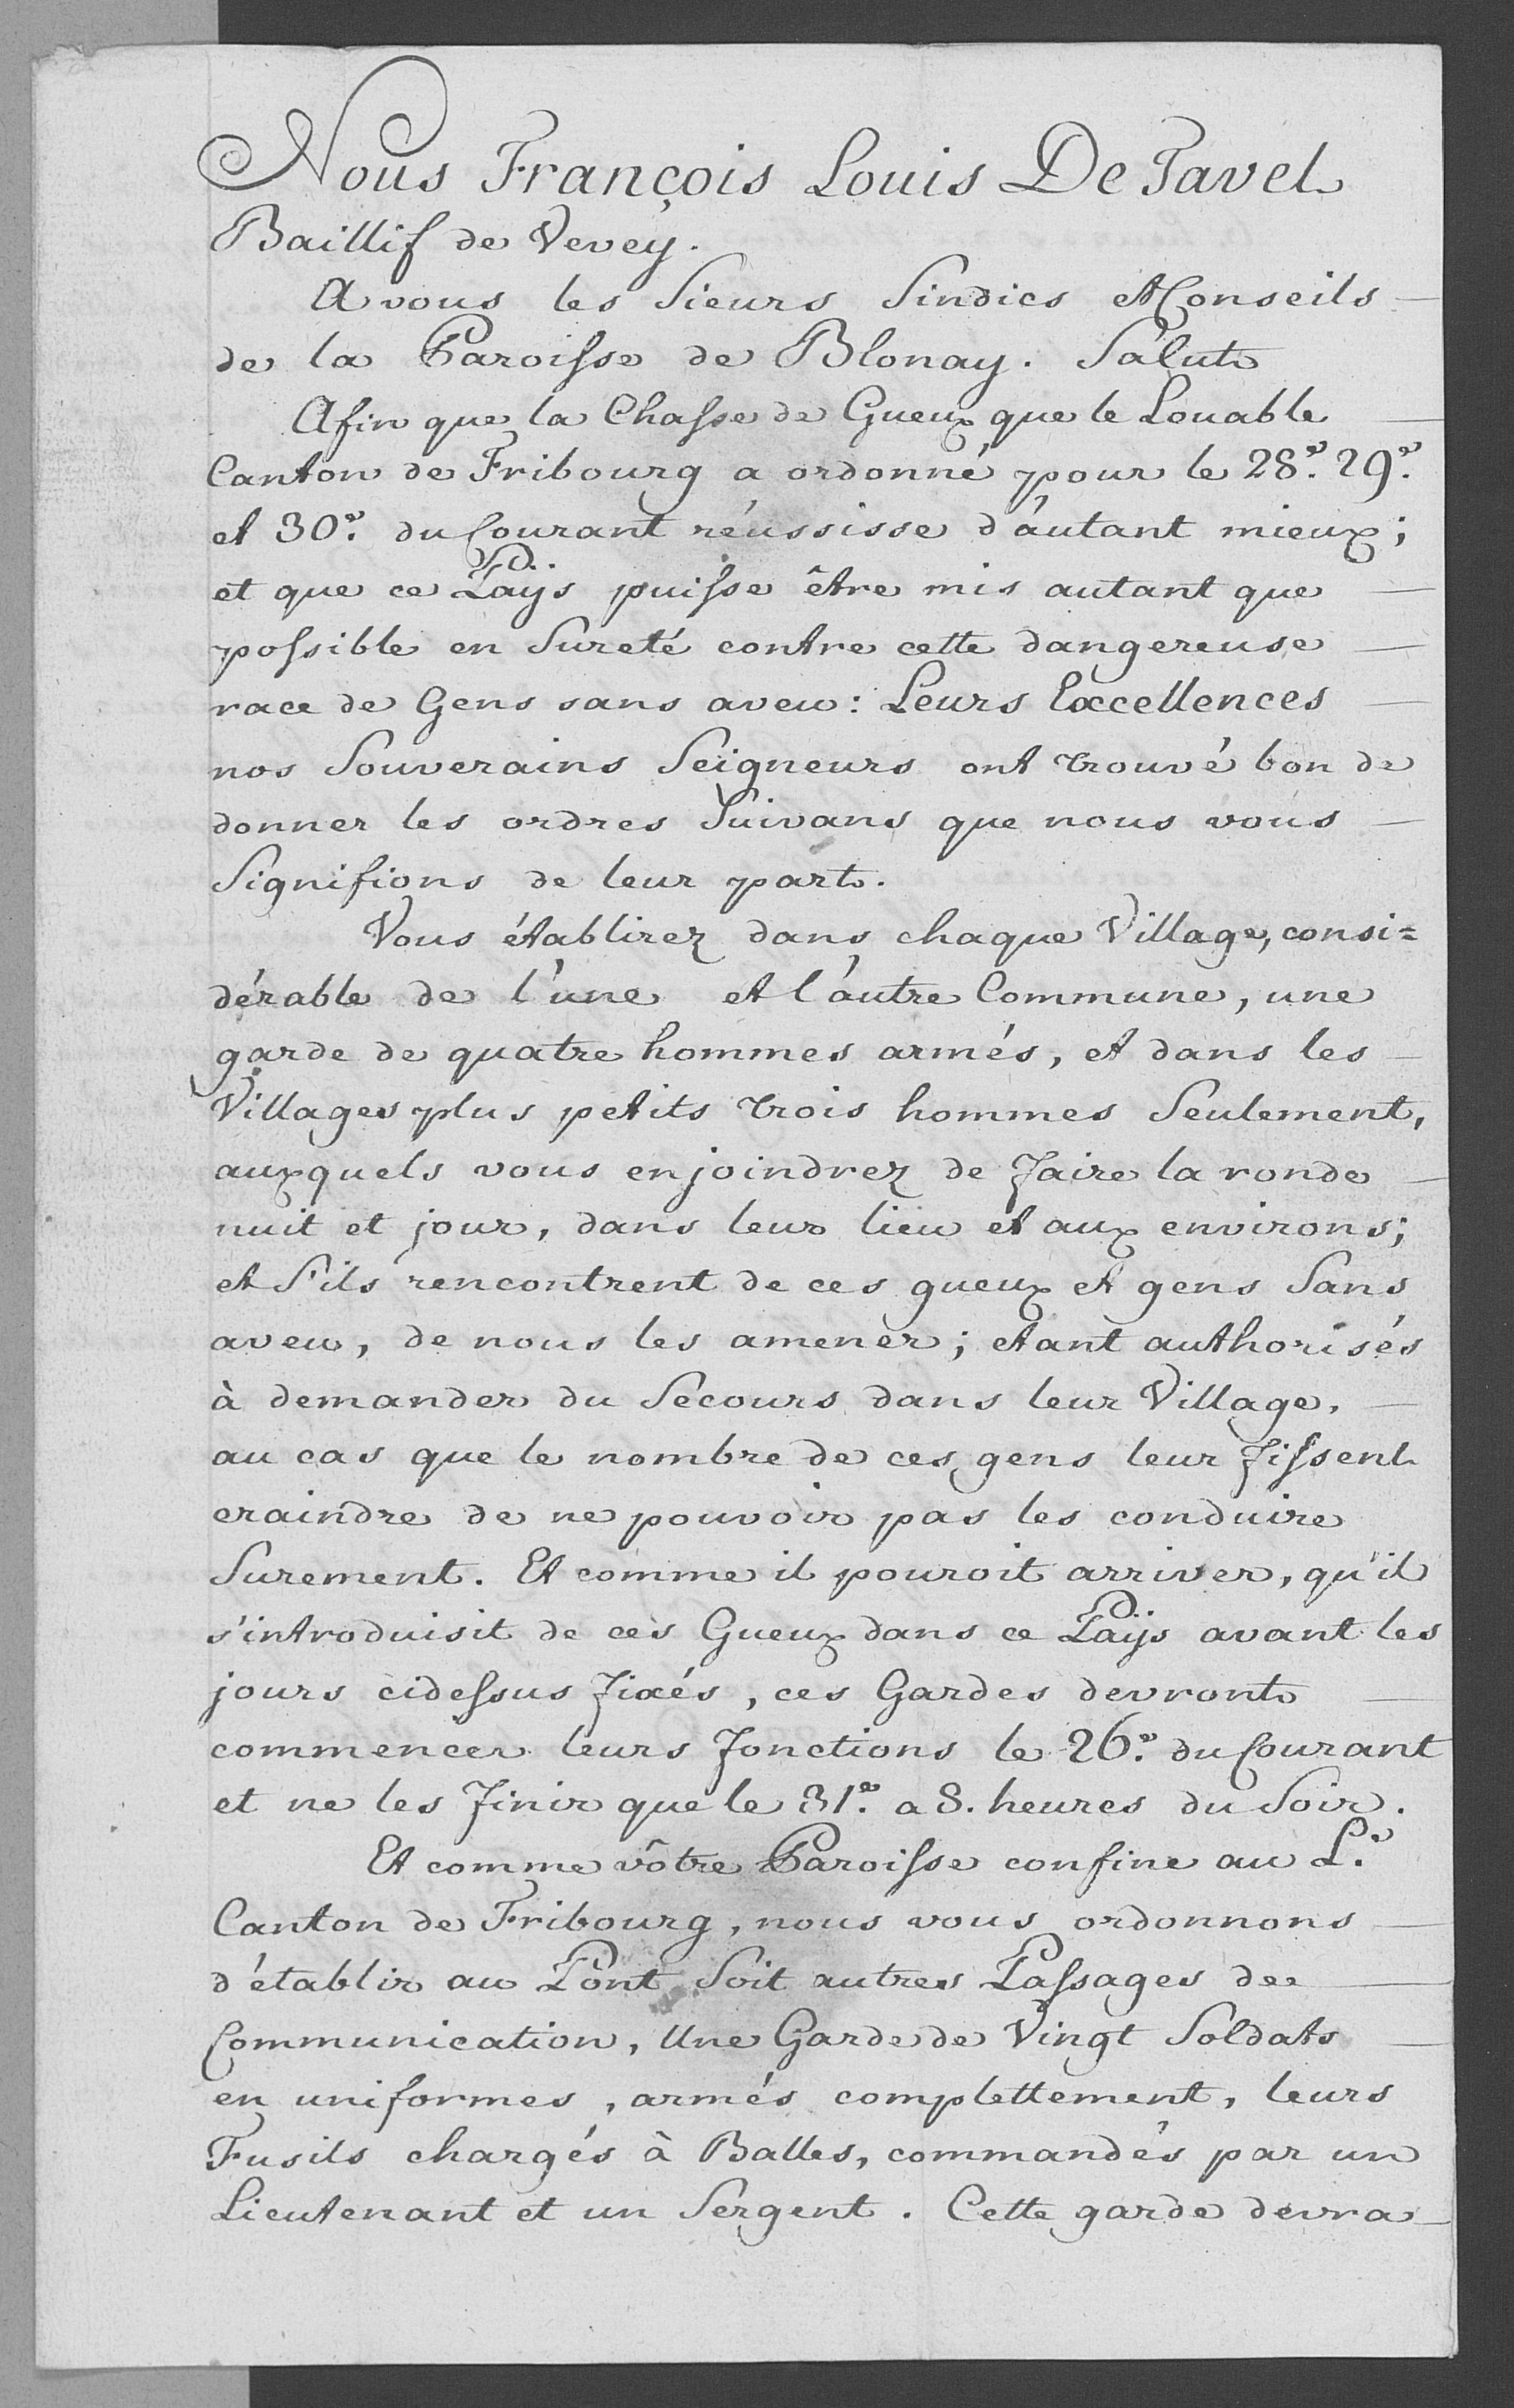 Nous François Louis De Tavel
Baillif de Vevey.
A vous les Sieurs Sindics et Conseils
de la Paroisse de Blonay. Salut
Afin que la Chasse de Gueux que le Louable
Canton de Fribourg a ordonné pour le 28.e 29.e
et 30.e du Courant réussisse d'autant mieux;
et que ce Païs puisse être mis autant que
possible en Sureté contre cette dangereuse
race de Gens sans aveu: Leurs Excellences
nos Souverains Seigneurs ont trouvé bon de
donner les ordres Suivans que nous vous
Signifions de leur part.
Vous établirez dans chaque Village, consi=
dérable de l'une et l'autre Commune, une
garde de quatre hommes armés, et dans les
Villages plus petits trois hommes Seulement,
auxquels vous enjoindrez de faire la ronde
nuit et jour, dans leur lieu et aux environs;
et S'ils rencontrent de ces gueux et gens Sans
aveu, de nous les amener; etant authorisés
à demander du Secours dans leur Village,
au cas que le nombre de ces gens leur fissent
craindre de ne pouvoir pas les conduire
Surement. Et comme il pouroit arriver, qu'il
s'introduisit de ces Gueux dans ce Païs avant les
jours cidessus fixés, ces Gardes devront
commencer leurs fonctions le 26.e du Courant
et ne les finir que le 31.e a 8. heures du Soir.
Et comme vôtre Paroisse confine au L.e
Canton de Fribourg, nous vous ordonnons
d'établir au Pont Soit autres Passages de
Communication, Une Garde de Vingt Soldats
en uniformes, armés complettement, leurs
Fusils chargés à Balles, commandés par un
Lieutenant et un Sergent. Cette garde devra